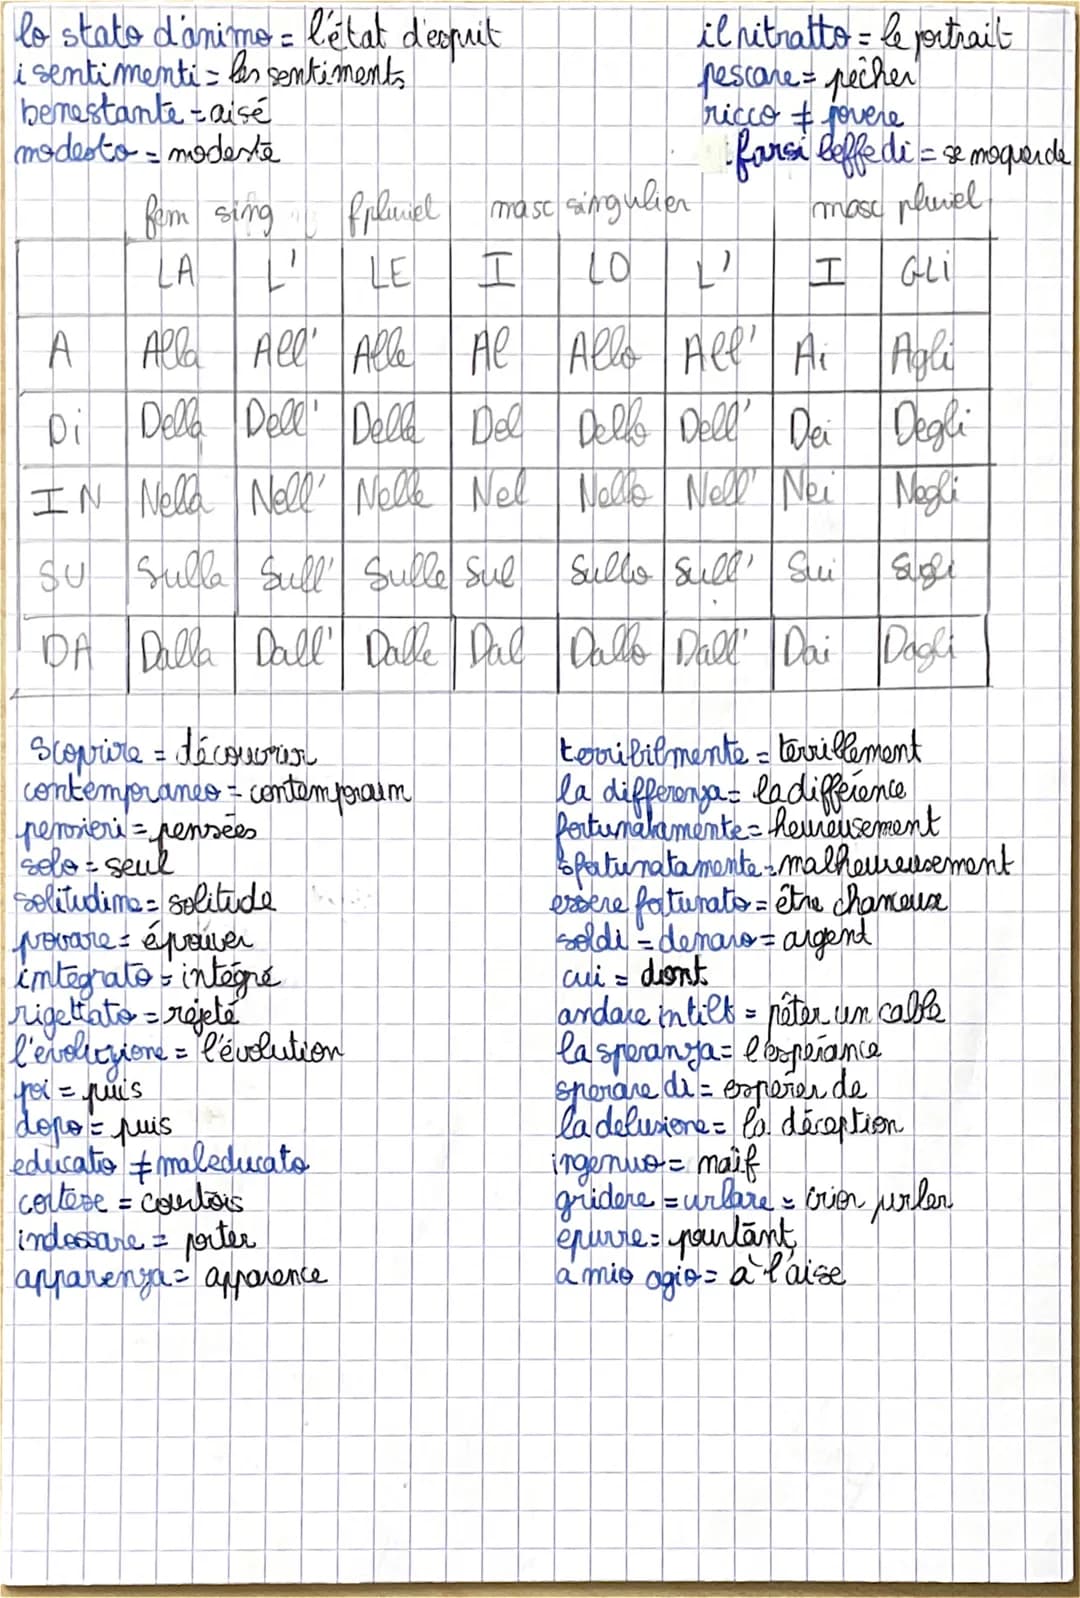 lo stato d'animo = l'état d'esprit
i sentimenti = les sentiments
benestante = aisé
modesto = modeste
il ritratto = le portrait
pescare = pêcher
ricco ≠ povere
farsi beffe di = se moquer de
fem sing f pluriel masc singulier masc pluriel
LA L' LE I LO L' I GLi
A Alla All' Alle Al Allo All' Ai Agli
Di Della Dell' Delle Del Dello Dell' Dei Degli
IN Nella Nell' Nelle Nel Nello Nell' Nei Negli
SU Sulla Sull' Sulle Sul Sullo Sull' Sui Sugli
DA Dalla Dall' Dalle Dal Dallo Dall' Dai Dagli
Scoprire = découvrir
contemporaneo = contemporain
pensieri = pensées
solo = seul
solitudine = solitude
provare = éprouver
integrato = intégré
rigettato = rejeté
l'evoluzione = l'évolution
poi = puis
dopo = puis
educato ≠ maleducato
cortese = courtois
indossare = porter
apparenza = apparence
terribilmente = terriblement
la differenza = la différence
fortunatamente = heureusement
sfortunatamente = malheureusement
essere fortunato = être chanceux
soldi = denaro = argent
cui = dont
andare in tilt = pêter un cable
la speranza = l'espérance
sperare di = espérer de
la delusione = la déception
ingenuo = naïf
gridere = urlare = crier urler
epurre = pourtant
a mio agio = à l'aise